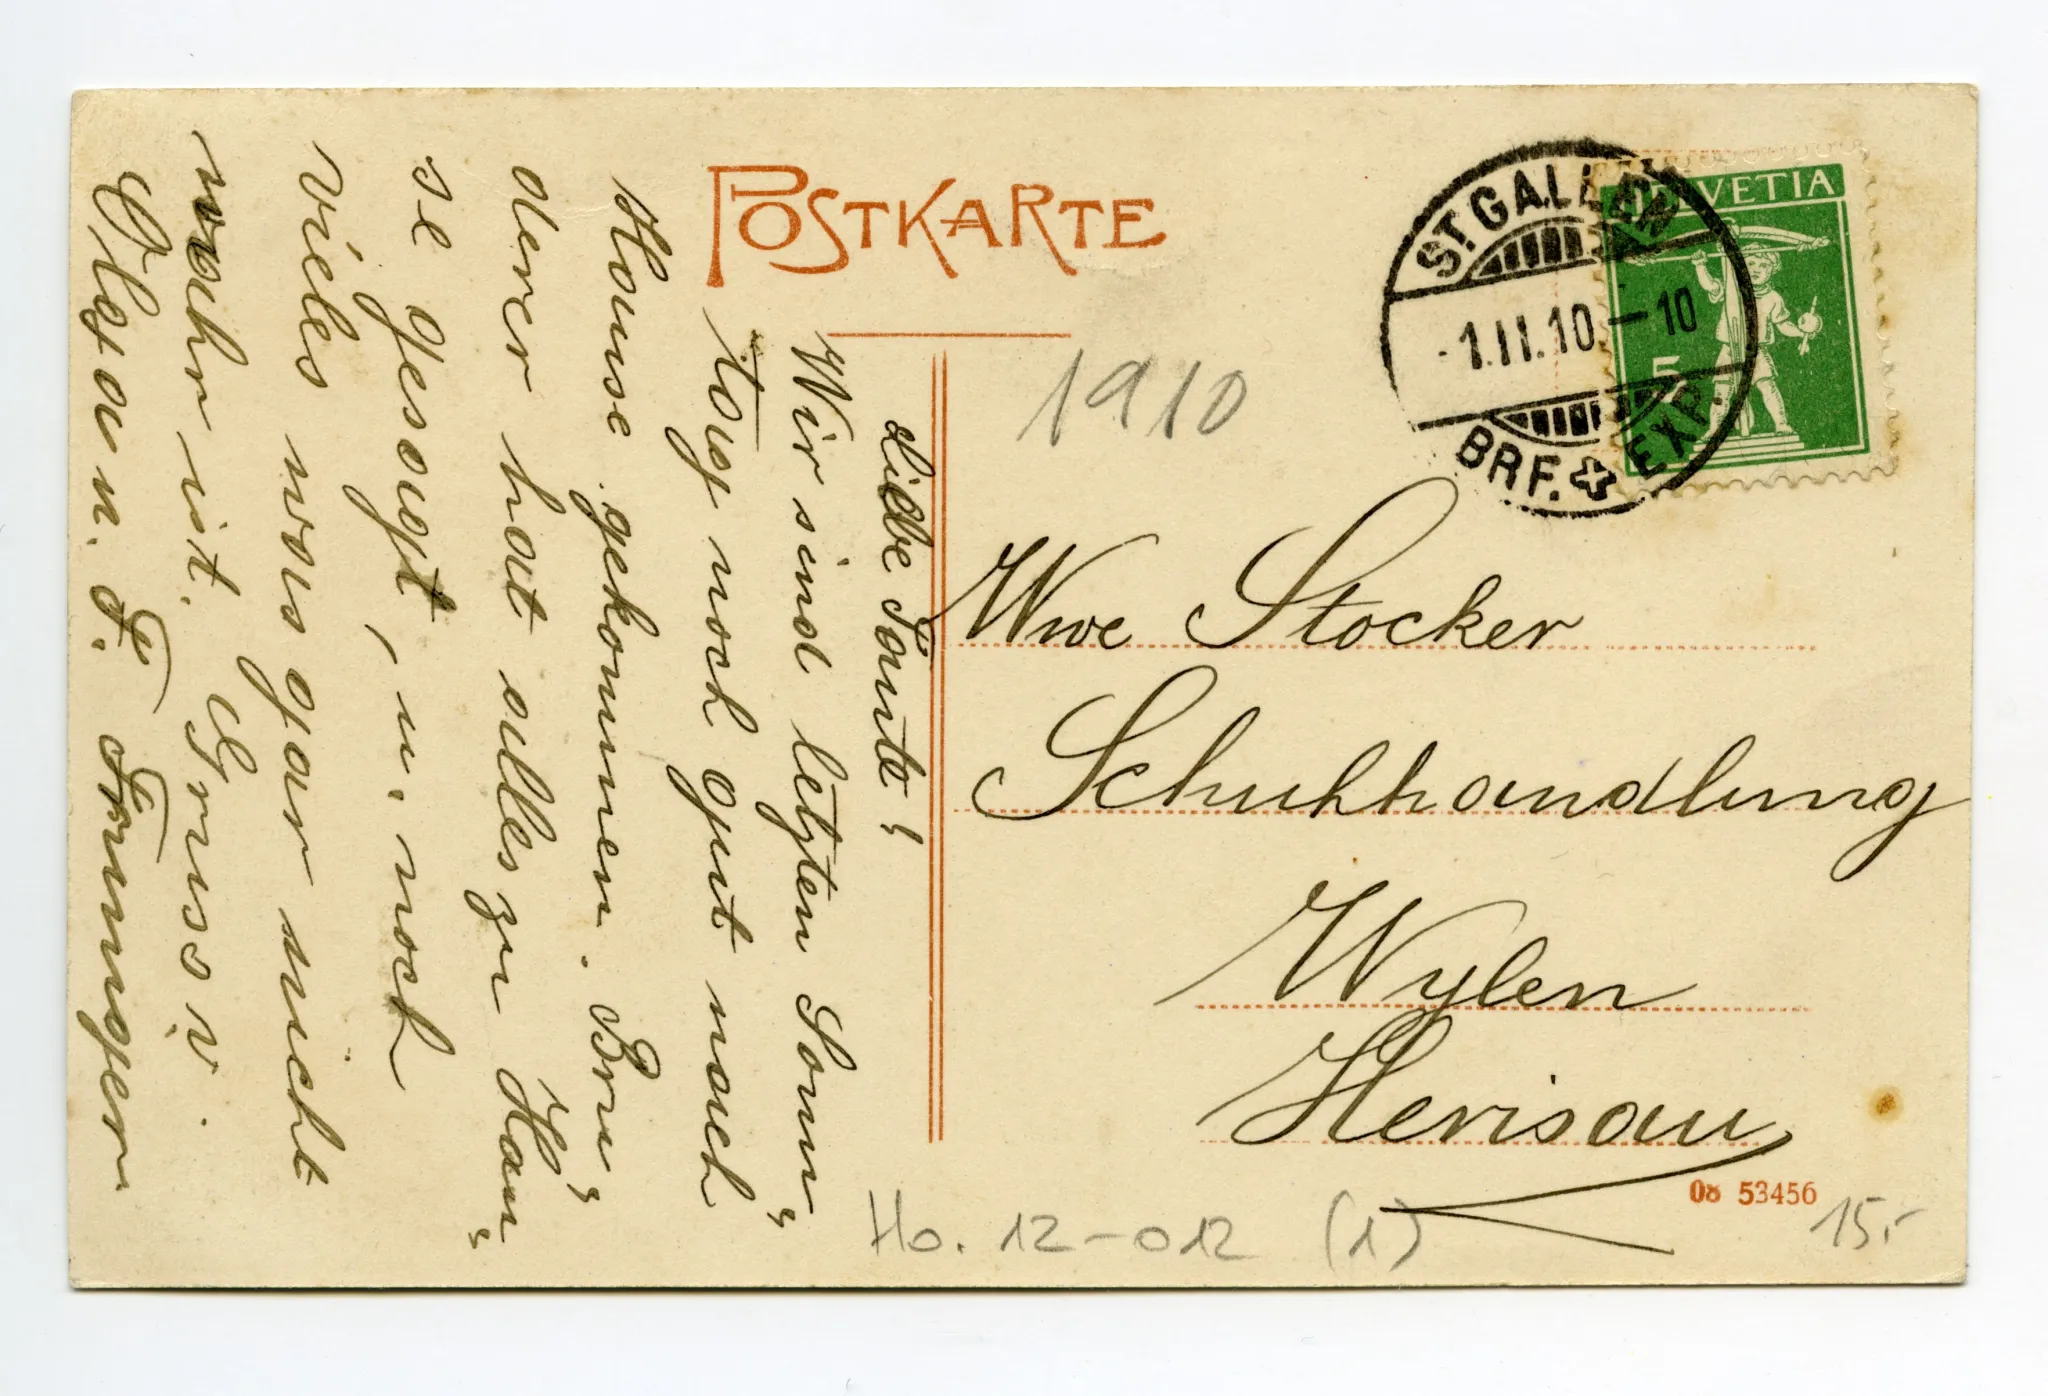 POSTKARTE
HELVETIA
5
ST. GALLEN
-1.II.10-10
BRF. EXP.
1910
Wwe Stocker
Schuhhandlung
Wylen
Herisau
08 53456
15.-
Ho. 12-012 (1)
Liebe Tante!
Wir sind letzten Sonn„
tag noch gut nach
Hause gekommen. Bru„
der hat alles zu Hau„
se gesagt, u. noch
vieles was gar nicht
wahr ist. Gruss v.
F. Tanner